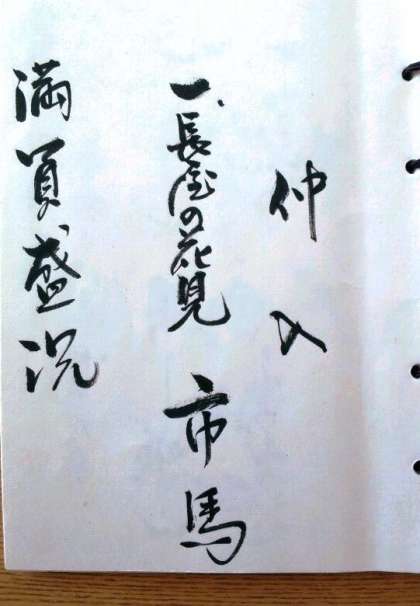 仲入
一、長屋の花見 市馬
満員盛況